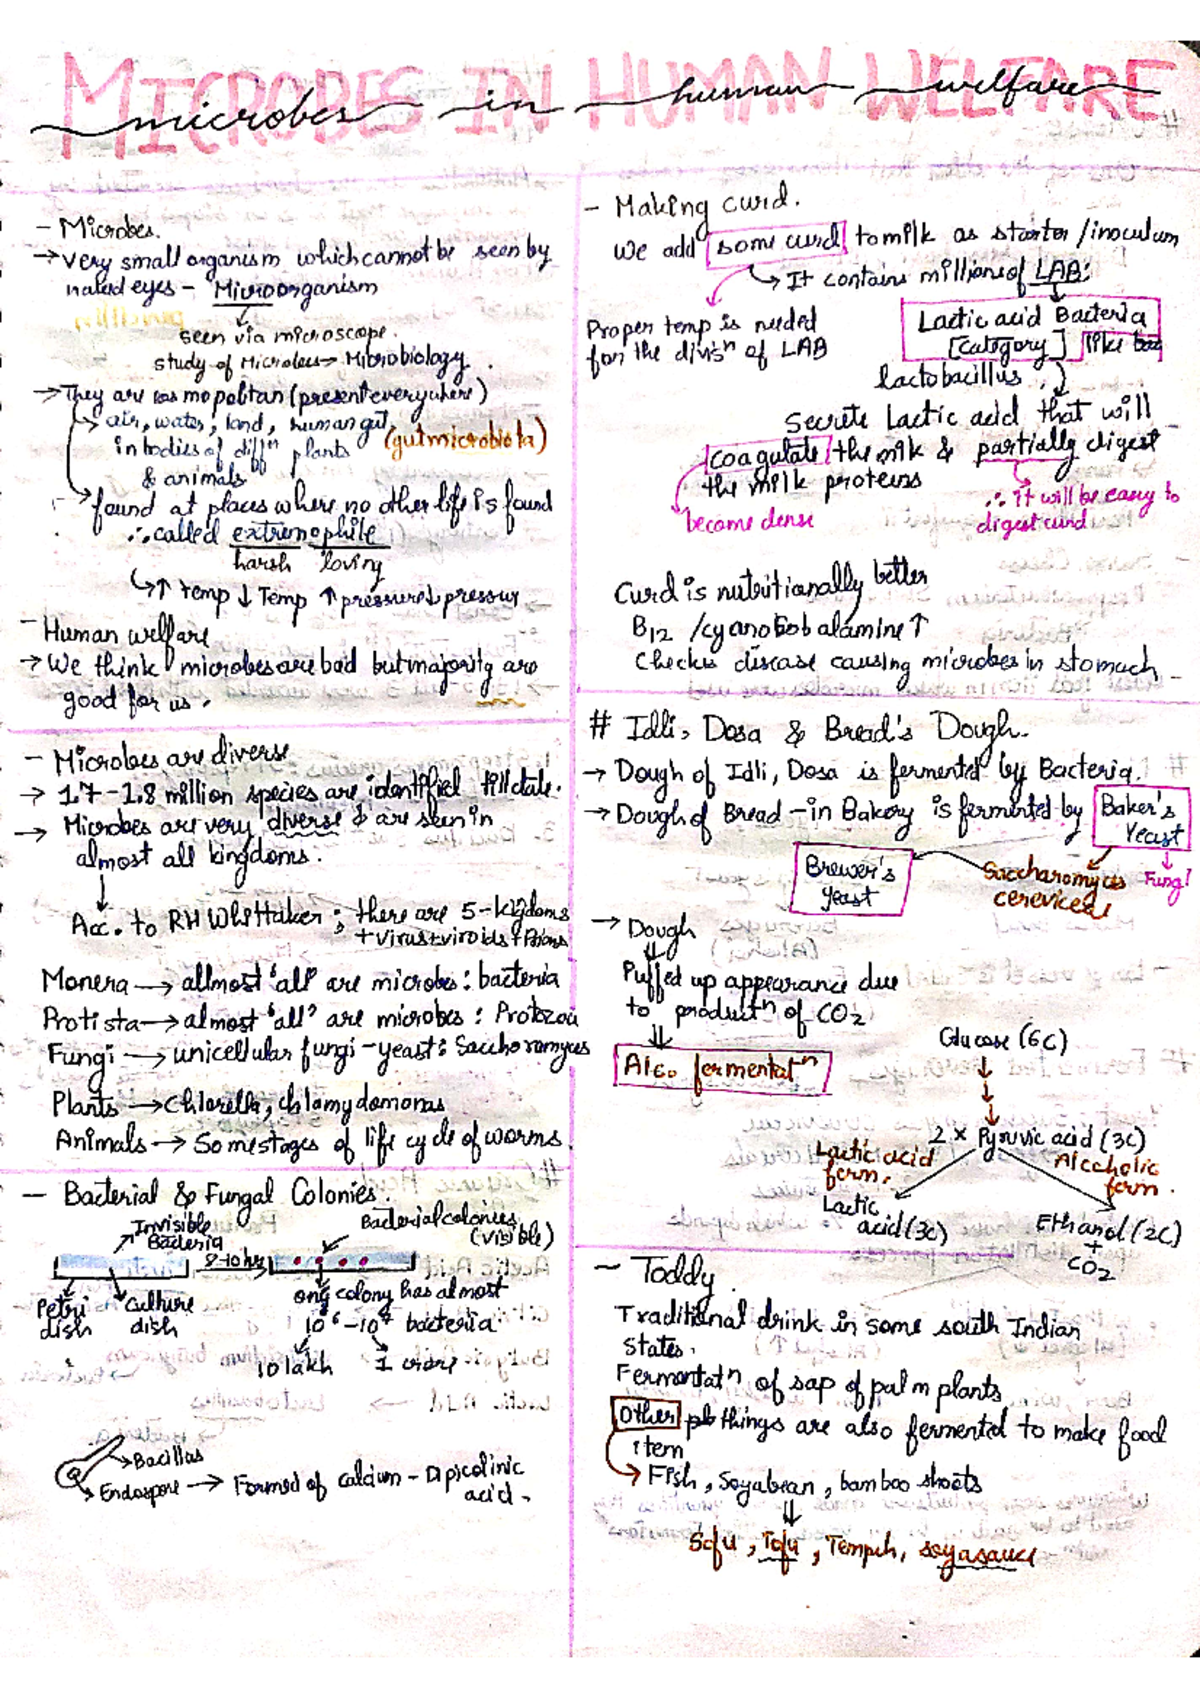 MICROBES IN HUMAN WELFARE
microbes in human welfare
- Microbes.
→ very small organism which cannot be seen by
naked eyes - Microorganism
seen via microscope.
study of Microbes → Microbiology.
→ They are cosmopolitan (present everywhere)
→ air, water, land, human gut, (gut microbiota)
in bodies of diffn plants
& animals
→ found at places where no other life is found
∴ called extremophile
harsh loving
↑ temp ↓ Temp ↑ pressure ↓ pressur
- Human welfare
→ We think microbes are bad but majority are
good for us.
- Microbes are diverse
→ 1.7 - 1.8 million species are identified till date.
→ Microbes are very diverse & are seen in
almost all kingdoms.
Acc. to RH Whittaker : there are 5-kigdoms
+virus+viroids+Prions
Monera → allmost 'all' are microbes : bacteria
Protista → almost 'all' are microbes : Protozoa
Fungi → unicellular fungi - yeast : Saccharomyces
Plants → Chlorella, chlamydomonas
Animals → Some stages of life cycle of worms.
- Bacterial & Fungal Colonies.
Invisible
Bacteria
Bacterial colonies
(visible)
8-10 hrs
Petri
dish
culture
dish
one colony has almost
10⁶ - 10⁷ bacteria
10 lakh 1 crore
→ Bacillas
→ Endospore → Formed of calcium - Dipicolinic
acid.
- Making curd.
we add some curd to milk as starter/inoculum
→ It contains millions of LAB:
Proper temp is needed
for the divisn of LAB
Lactic acid Bacteria
[category] like
lactobacillus.
Secrete Lactic acid that will
coagulate the milk & partially digest
the milk proteins
become dense
∴ it will be easy to
digest curd
Curd is nutritionally better
B12 /cyanocobalamine ↑
Checks disease causing microbes in stomach
# Idli, Dosa & Bread's Dough.
→ Dough of Idli, Dosa is fermented by Bacteria.
→ Dough of Bread - in Bakery is fermented by Baker's
Yeast
Brewer's
yeast
Saccharomyces
cereviceae
Fungi
→ Dough
Puffed up appearance due
to productn of CO2
Alco fermentatn
Glucose (6C)
2 × Pyruvic acid (3C)
Lactic acid
ferm.
Alcoholic
ferm.
Lactic
acid (3C)
Ethanol (2C)
+
CO2
- Toddy
Traditional drink in some south Indian
states.
Fermentatn of sap of palm plants
Other things are also fermented to make food
item
→ Fish, Soyabean, bamboo shoots
Sofu, Tofu, Tempeh, soyasauce